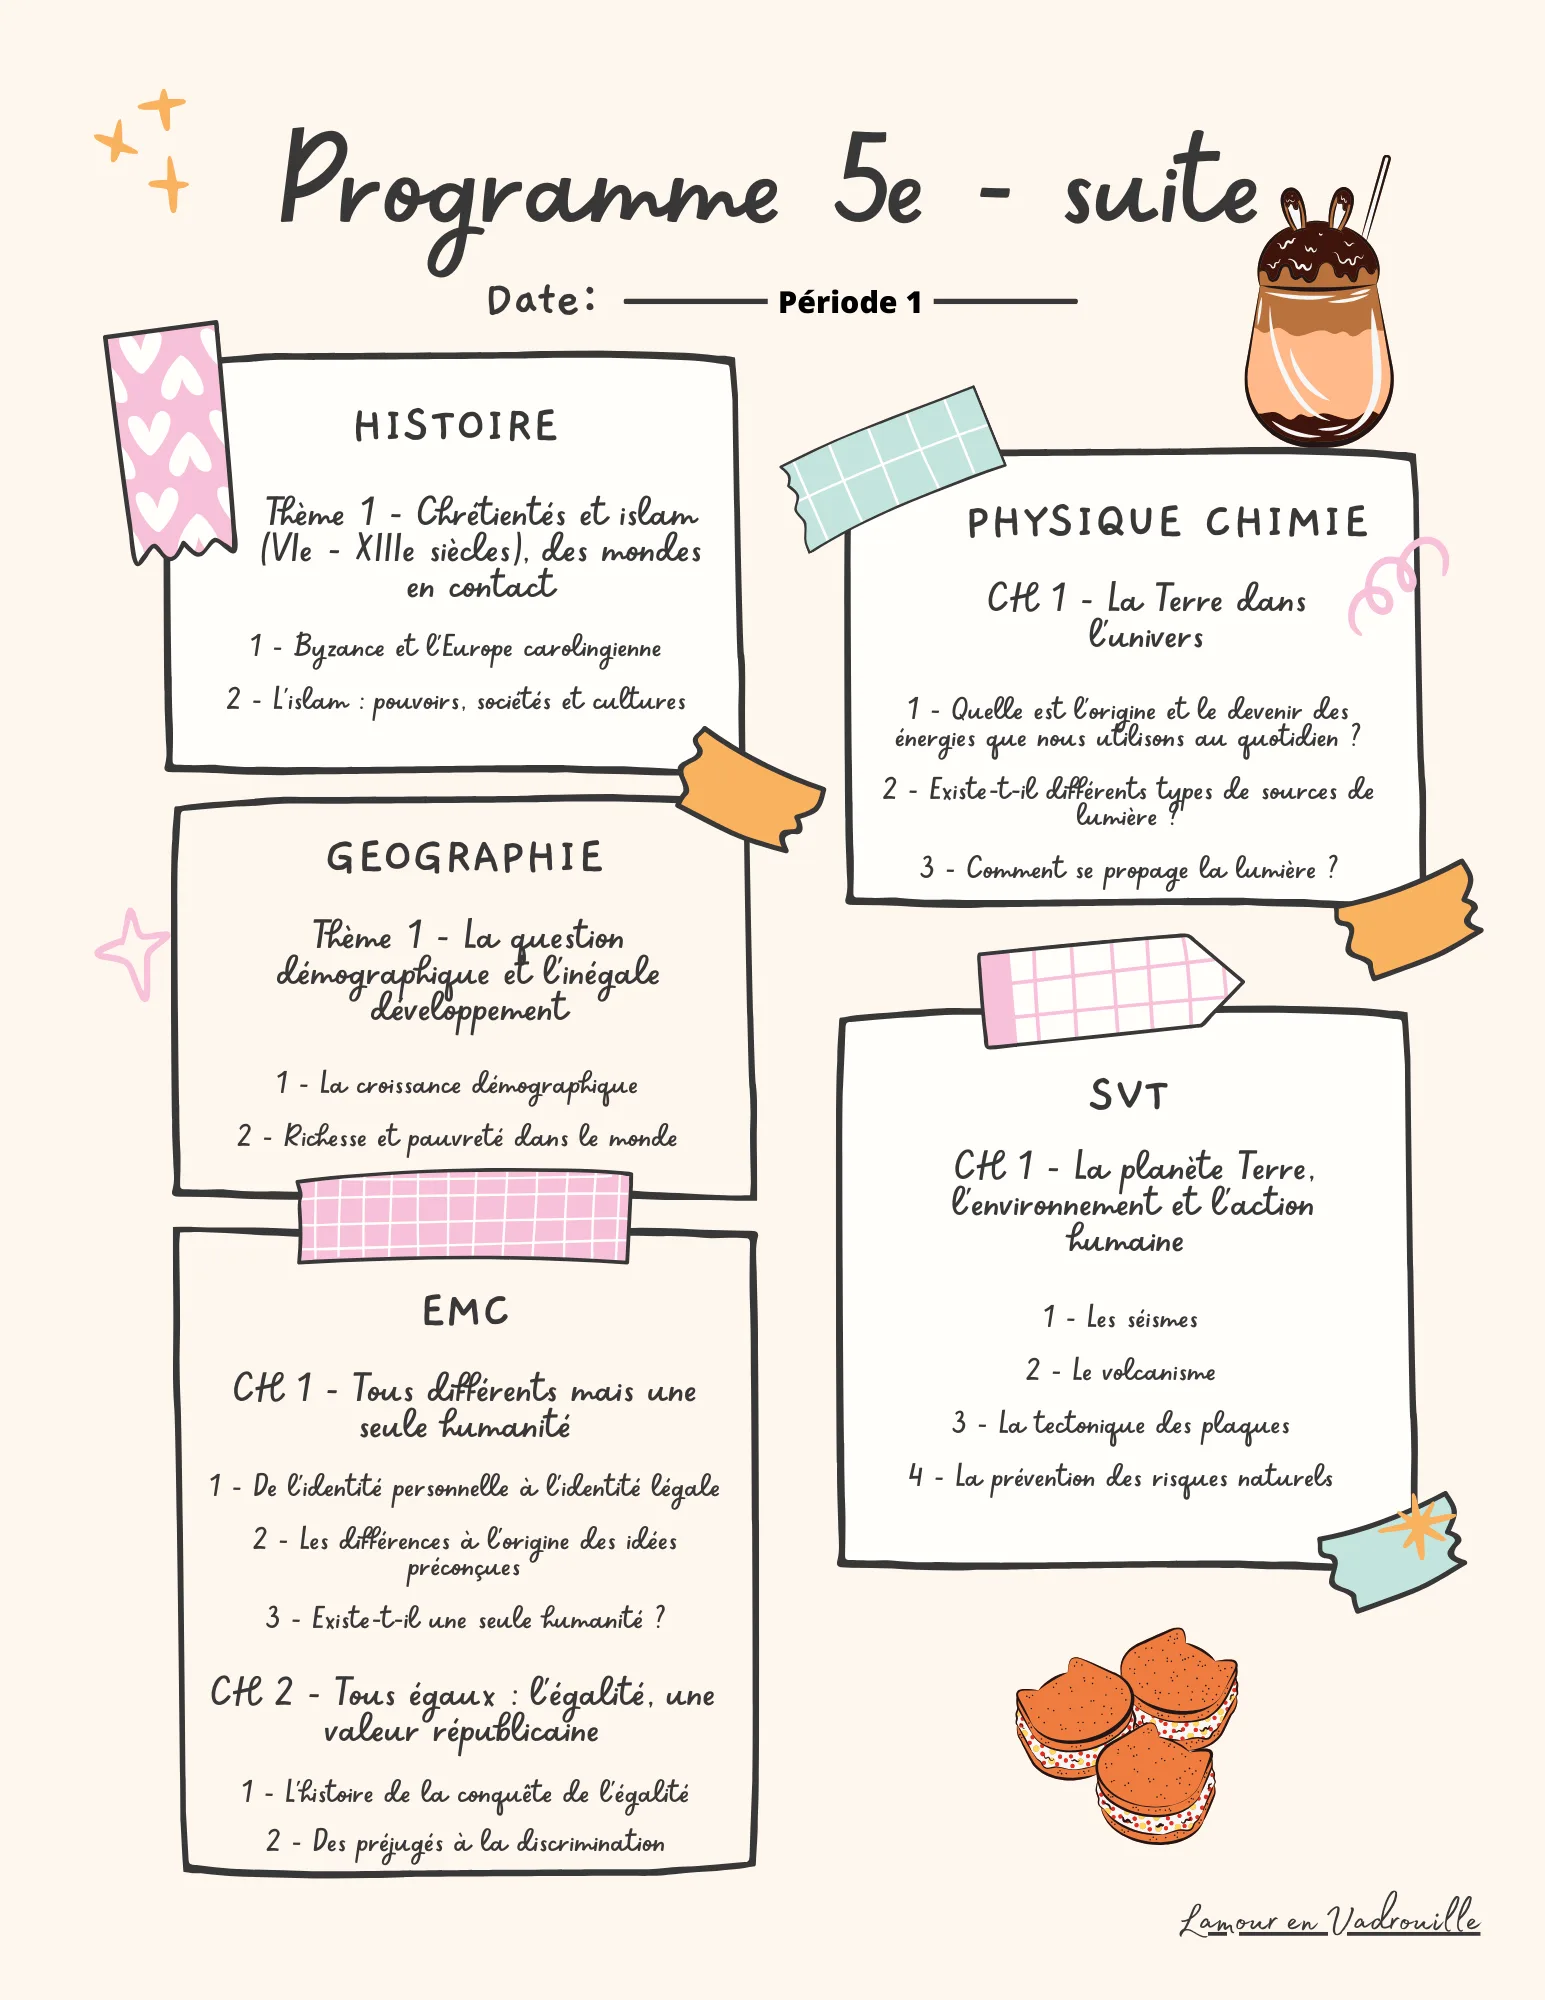 Programme 5e - suite
Date: Période 1
HISTOIRE
Thème 1 - Chrétientés et islam
(VIe - XIIIe siècles), des mondes
en contact
1 - Byzance et l'Europe carolingienne
2 - L'islam : pouvoirs, sociétés et cultures
GEOGRAPHIE
Thème 1 - La question
démographique et l'inégale
développement
1 - La croissance démographique
2 - Richesse et pauvreté dans le monde
EMC
CH 1 - Tous différents mais une
seule humanité
1 - De l'identité personnelle à l'identité légale
2 - Les différences à l'origine des idées
préconçues
3 - Existe-t-il une seule humanité ?
CH 2 - Tous égaux : l'égalité, une
valeur républicaine
1 - L'histoire de la conquête de l'égalité
2 - Des préjugés à la discrimination
PHYSIQUE CHIMIE
CH 1 - La Terre dans
l'univers
1 - Quelle est l'origine et le devenir des
énergies que nous utilisons au quotidien ?
2 - Existe-t-il différents types de sources de
lumière ?
3 - Comment se propage la lumière ?
SVT
CH 1 - La planète Terre,
l'environnement et l'action
humaine
1 - Les séismes
2 - Le volcanisme
3 - La tectonique des plaques
4 - La prévention des risques naturels
Lamour en Vadrouille